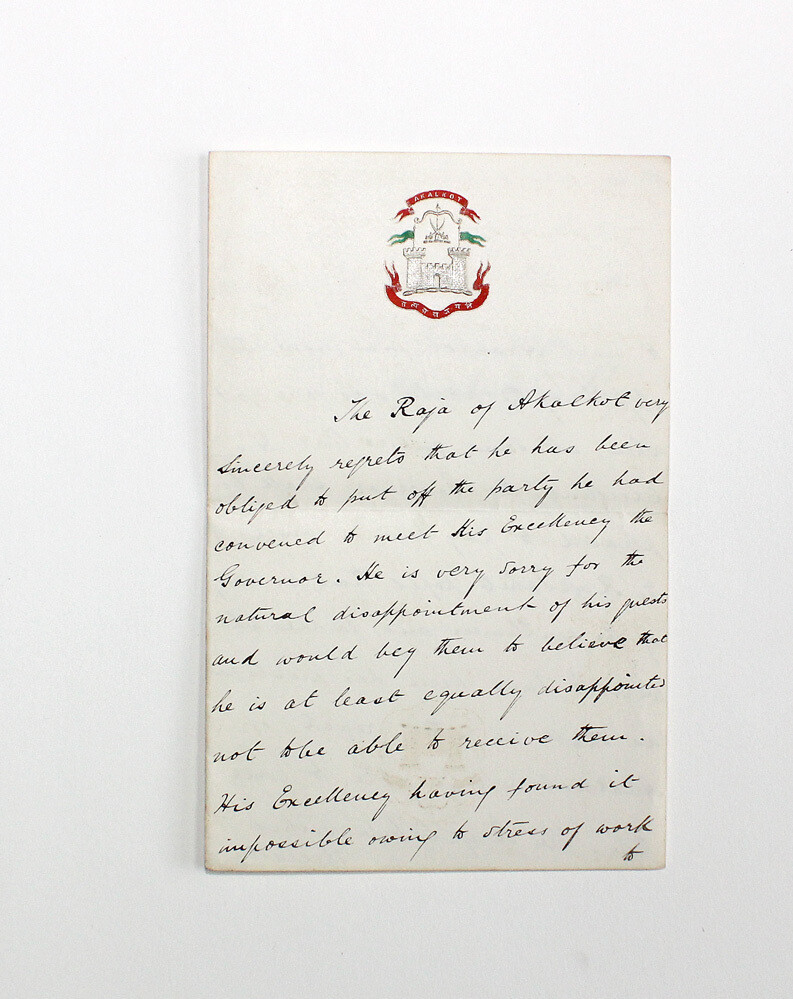 AKALKOT
The Raja of Akalkot very
sincerely regrets that he has been
obliged to put off the party he had
convened to meet His Excellency the
Governor. He is very sorry for the
natural disappointment of his guests
and would beg them to believe that
he is at least equally disappointed
not tobe able to receive them.
His Excellency having found it
impossible owing to stress of work
to